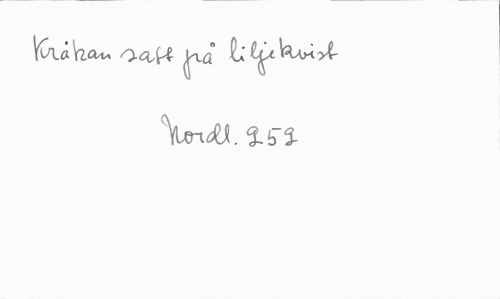 Kråkan satt på liljekvist
Nordl. 252